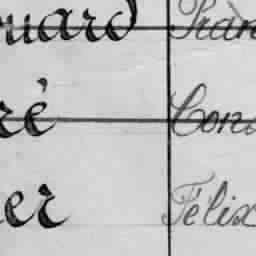 ouard Fran
ré Cons
er Félix